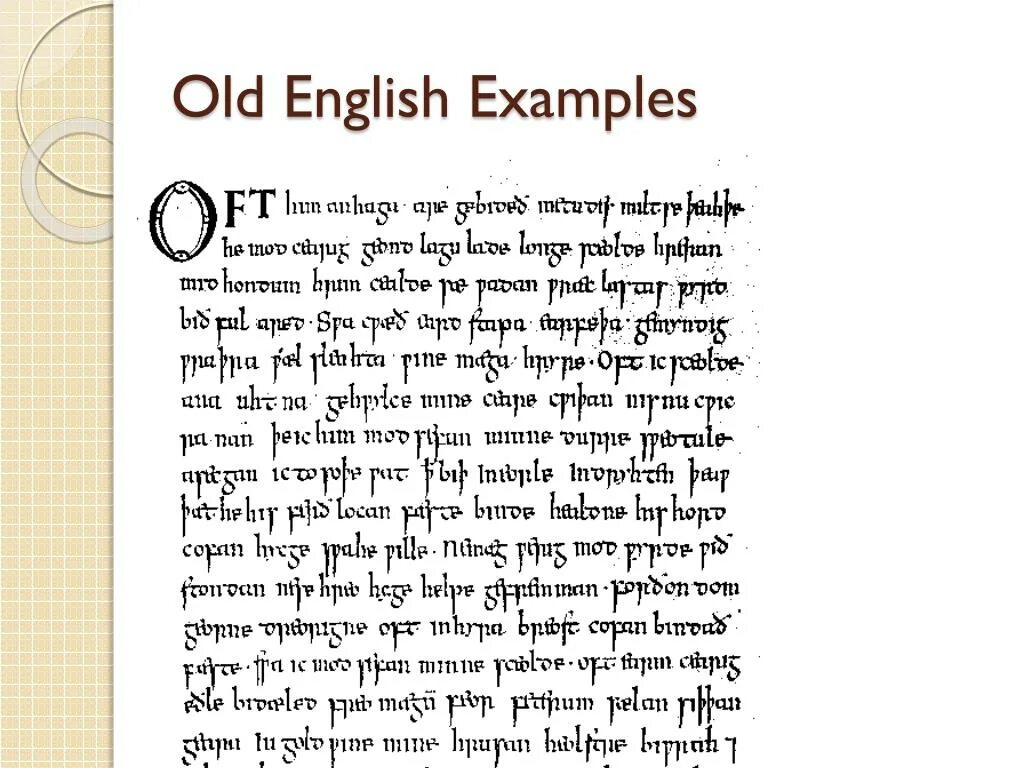 Old English Examples
OFT him anhaga · are gebideð metudes miltse þeah þe
he mod cearig geond lagu lade longe sceolde hreran
mid hondum hrim cealde sæ ƿadan ƿræc lastas ƿyrd
bið ful aræd · Sƿa cƿæð eard stapa earfeþa gemyndig
ƿraþra ƿæl sleahta ƿine mæga hryre · Oft ic sceolde
ana uhtna gehƿylce mine ceare cƿiþan nis nu cƿic
ra nan þe ic him mod sefan minne durre sƿeotule
asecgan ic to soþe ƿat ꝥ biþ in eorle indryhten þeaƿ
þæt he his ferð locan fæste binde healdne his hord
cofan hycge sƿa he ƿille · Ne mæg ƿerig mod ƿyrde ƿið
stondan ne se hreo hyge helpe gefremman · forðon dom
georne dreorigne oft in hyra breost cofan bindað
fæste · sƿa ic mod sefan minne sceolde · oft earm cearig
eðle bidæled freo mægū feor feterum sælan siþþan
geara iu gold ƿine mine hrusan heolster biƿrah ⁊